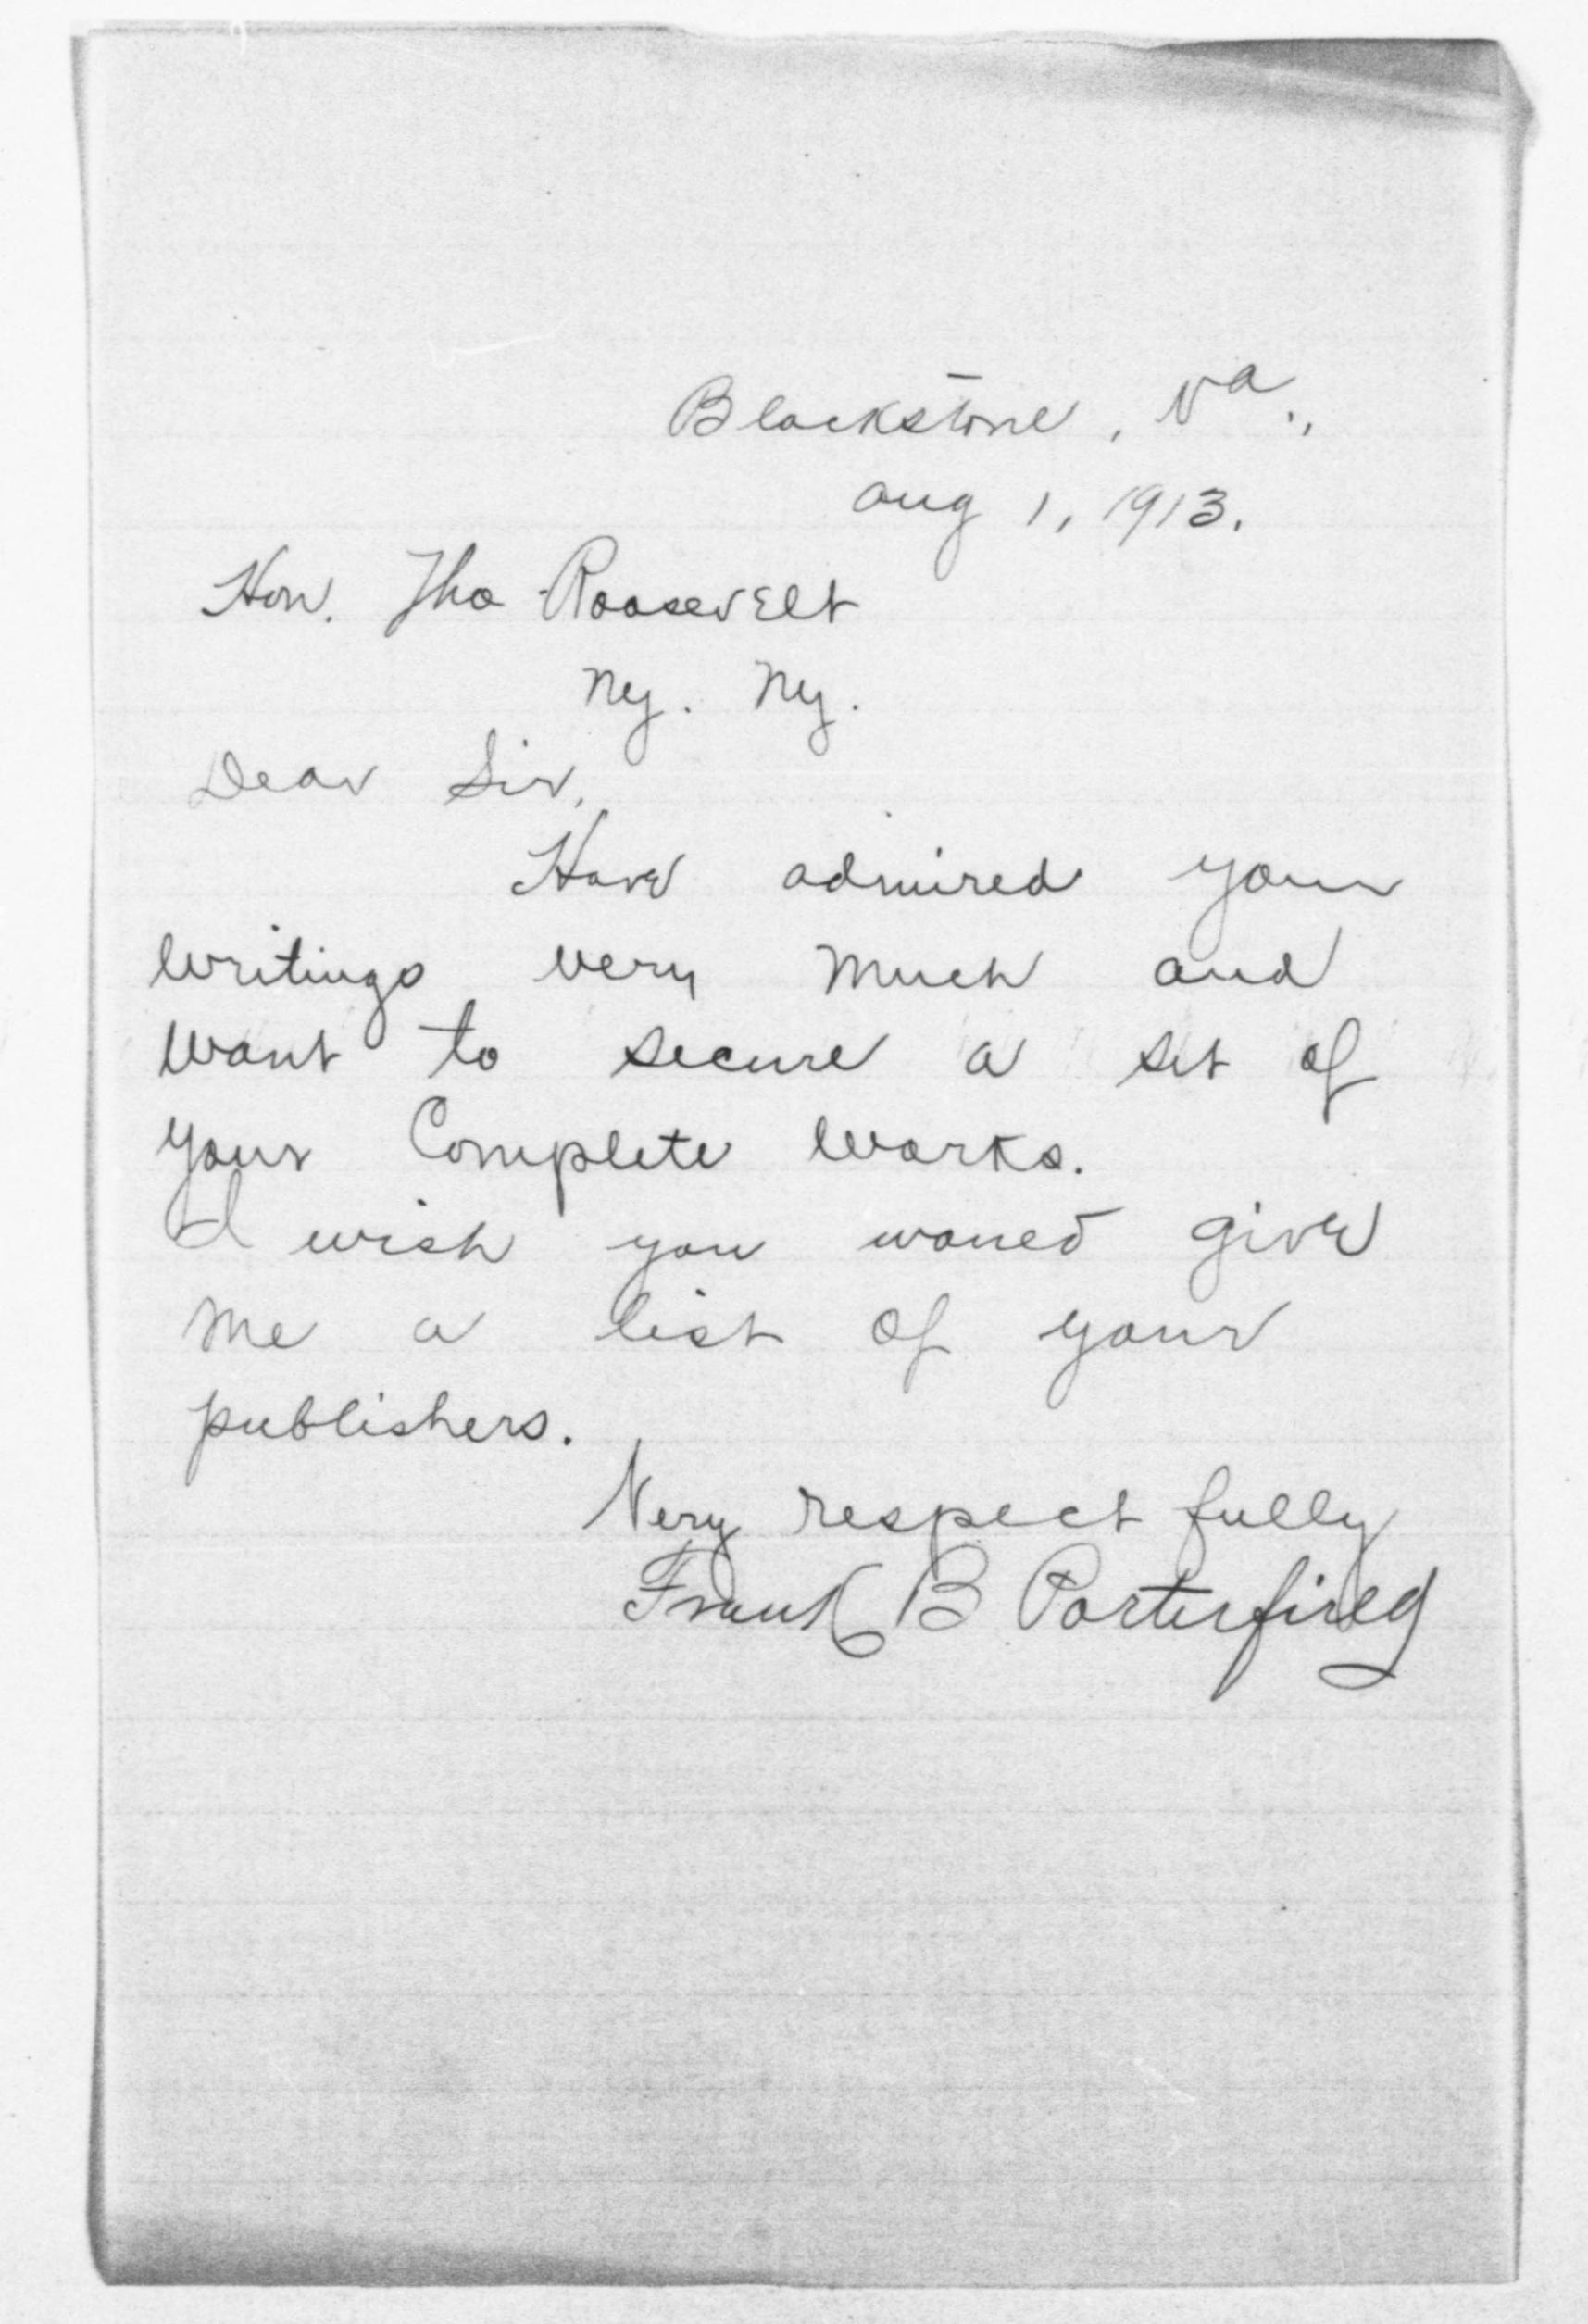 Blackstone, Va.,
Aug 1, 1913.
Hon. Tho Roosevelt
Ny. Ny.
Dear Sir,
Have admired your
writings very much and
want to secure a set of
your Complete works.
I wish you would give
me a list of your
publishers.
Very respectfully
Frank B Porterfield